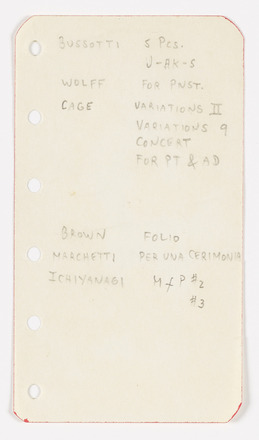 BUSSOTTI 5 PCS.
WOLFF FOR PNST.
CAGE VARIATIONS II
VARIATIONS
CONCERT
FOR PT & AD
BROWN FOLIO
MARCHETTI PER UNA CERIMONIA
ICHIYANAGI M f P #2
#3